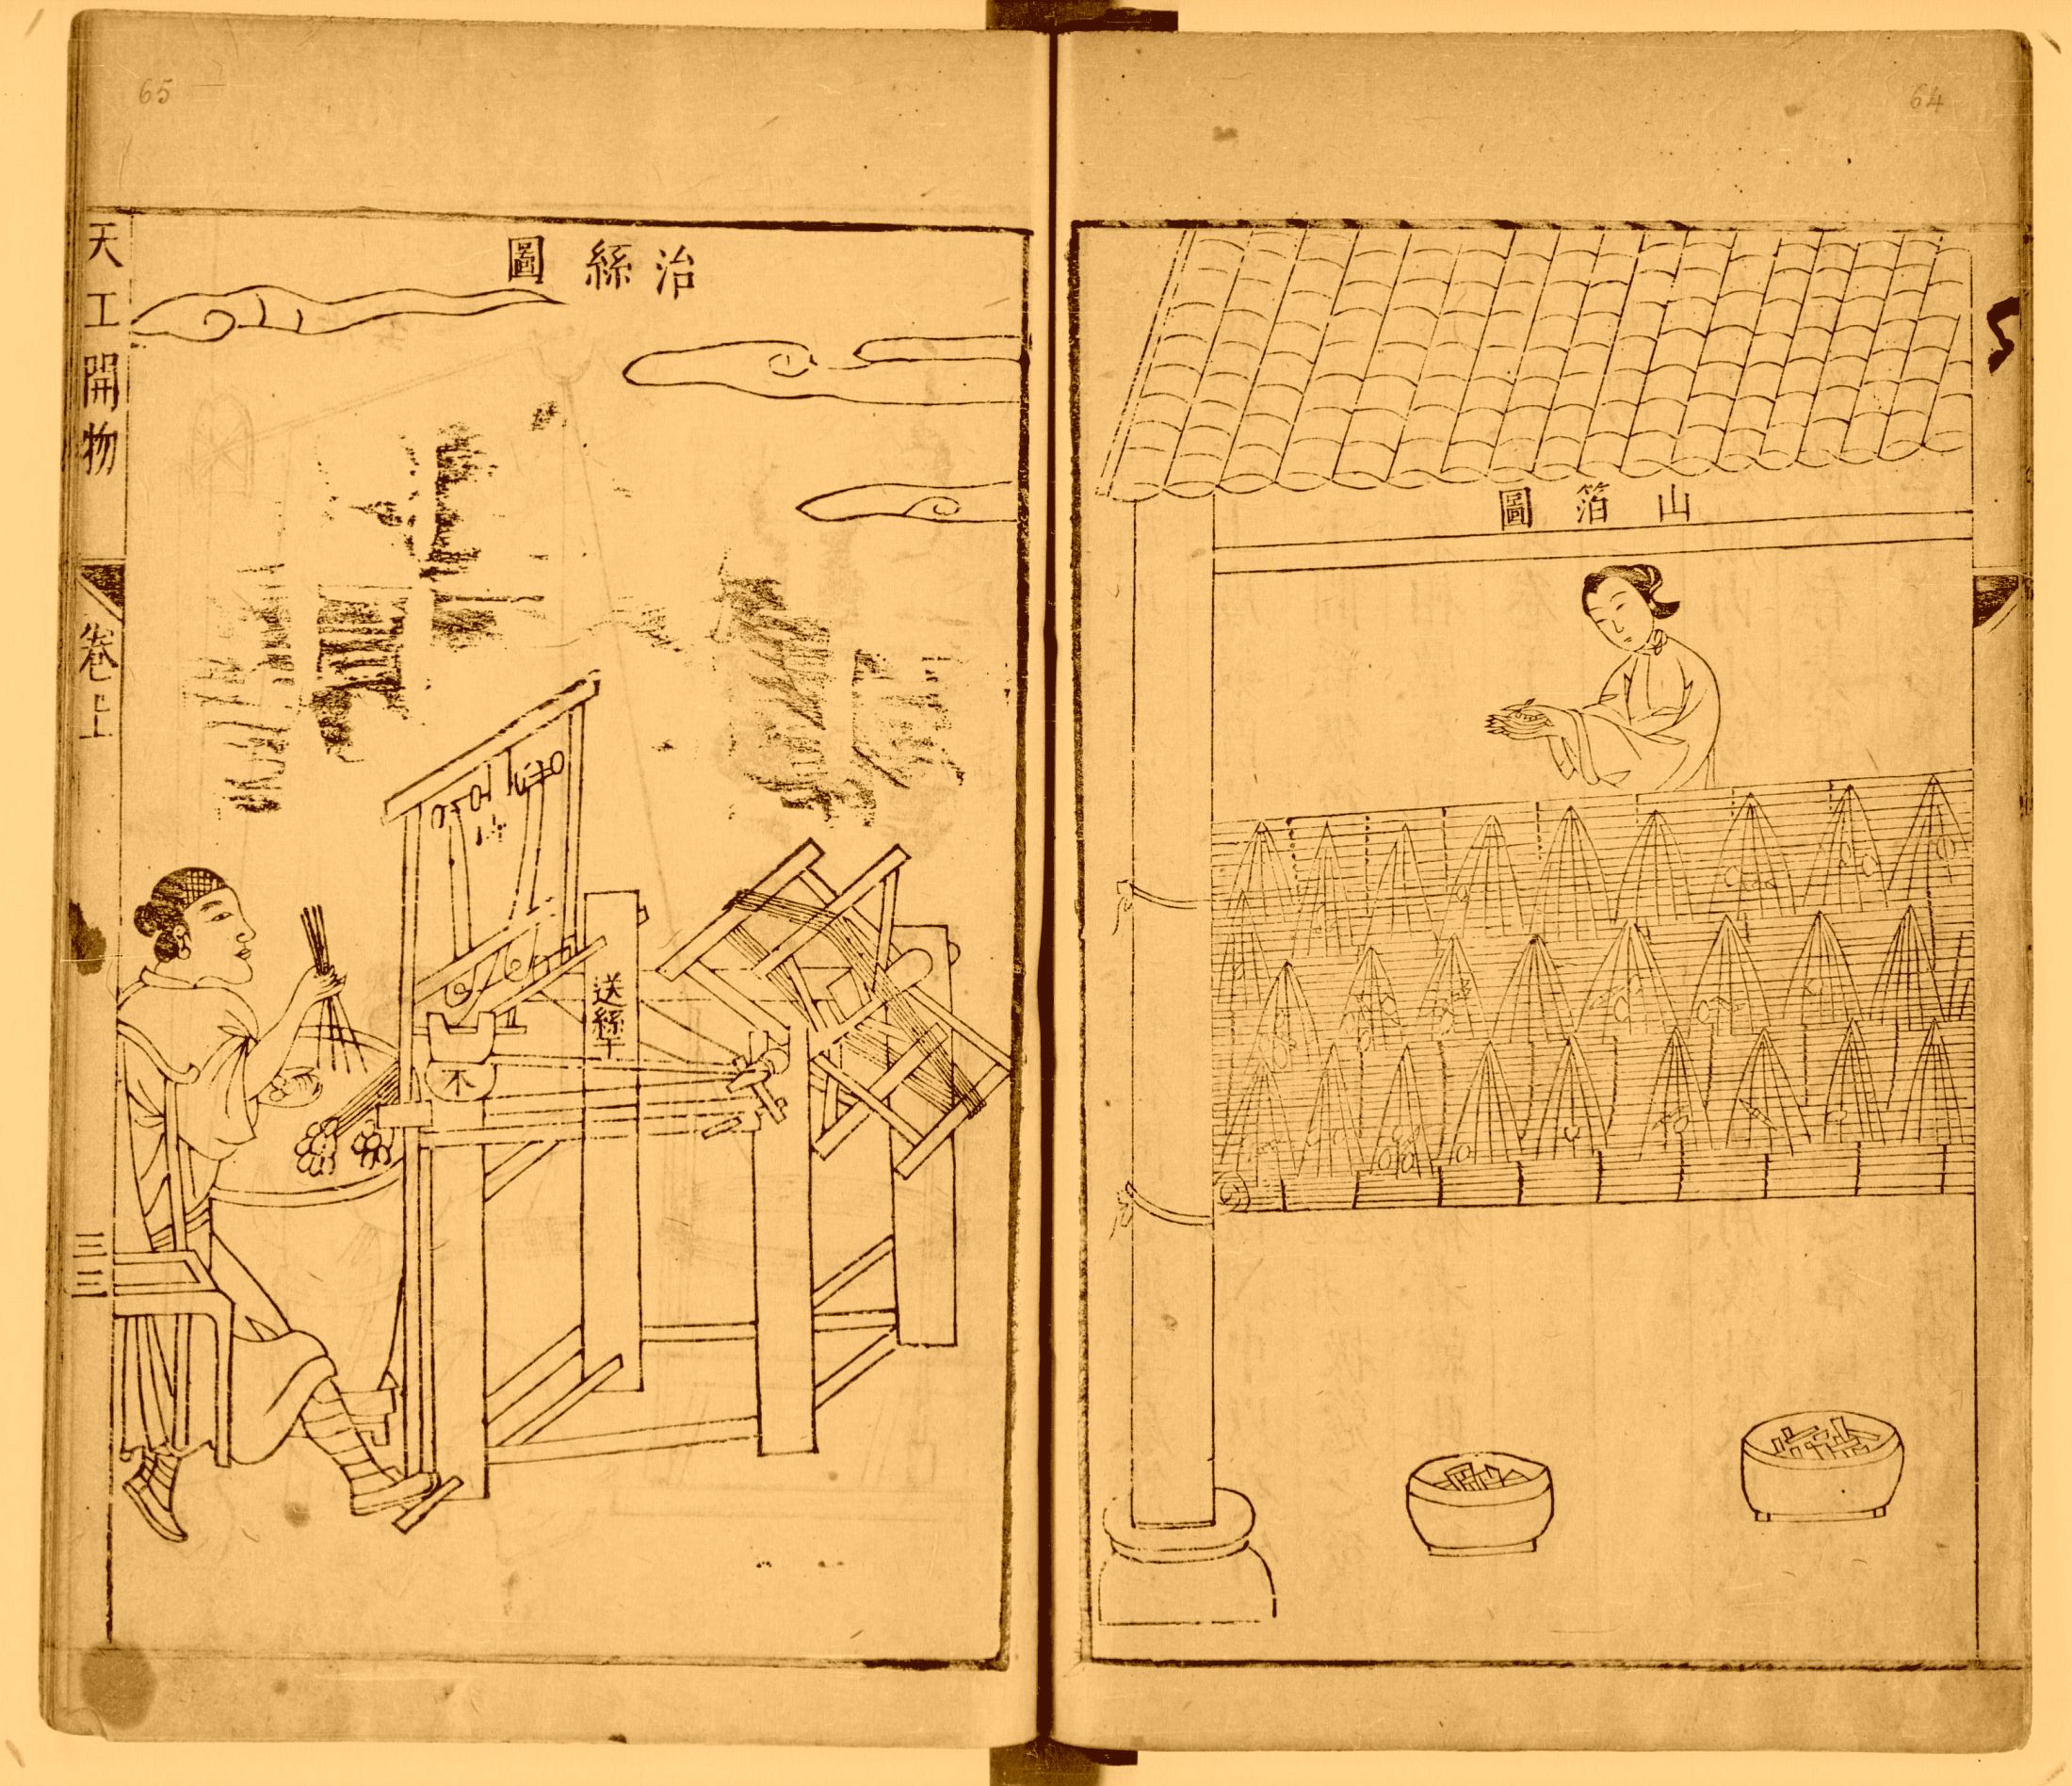 64
山箔圖
65
治絲圖
天工開物
卷上
三三
送絲竿
不